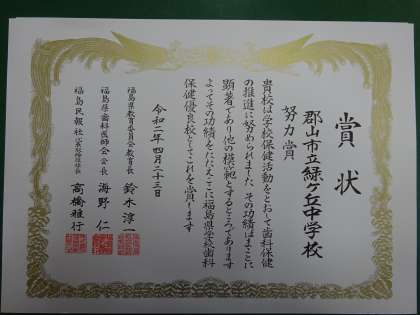 賞状
郡山市立緑ケ丘中学校
努力賞
貴校は学校保健活動をとおして歯科保健
の推進に努められました その功績はまことに
顕著であり他の模範とするところであります
よってその功績をたたえここに福島県学校歯科
保健優良校としてこれを賞します
令和二年四月二十三日
福島県教育委員会教育長 鈴木淳一
福島県歯科医師会会長 海野仁
福島民報社 高橋雅行